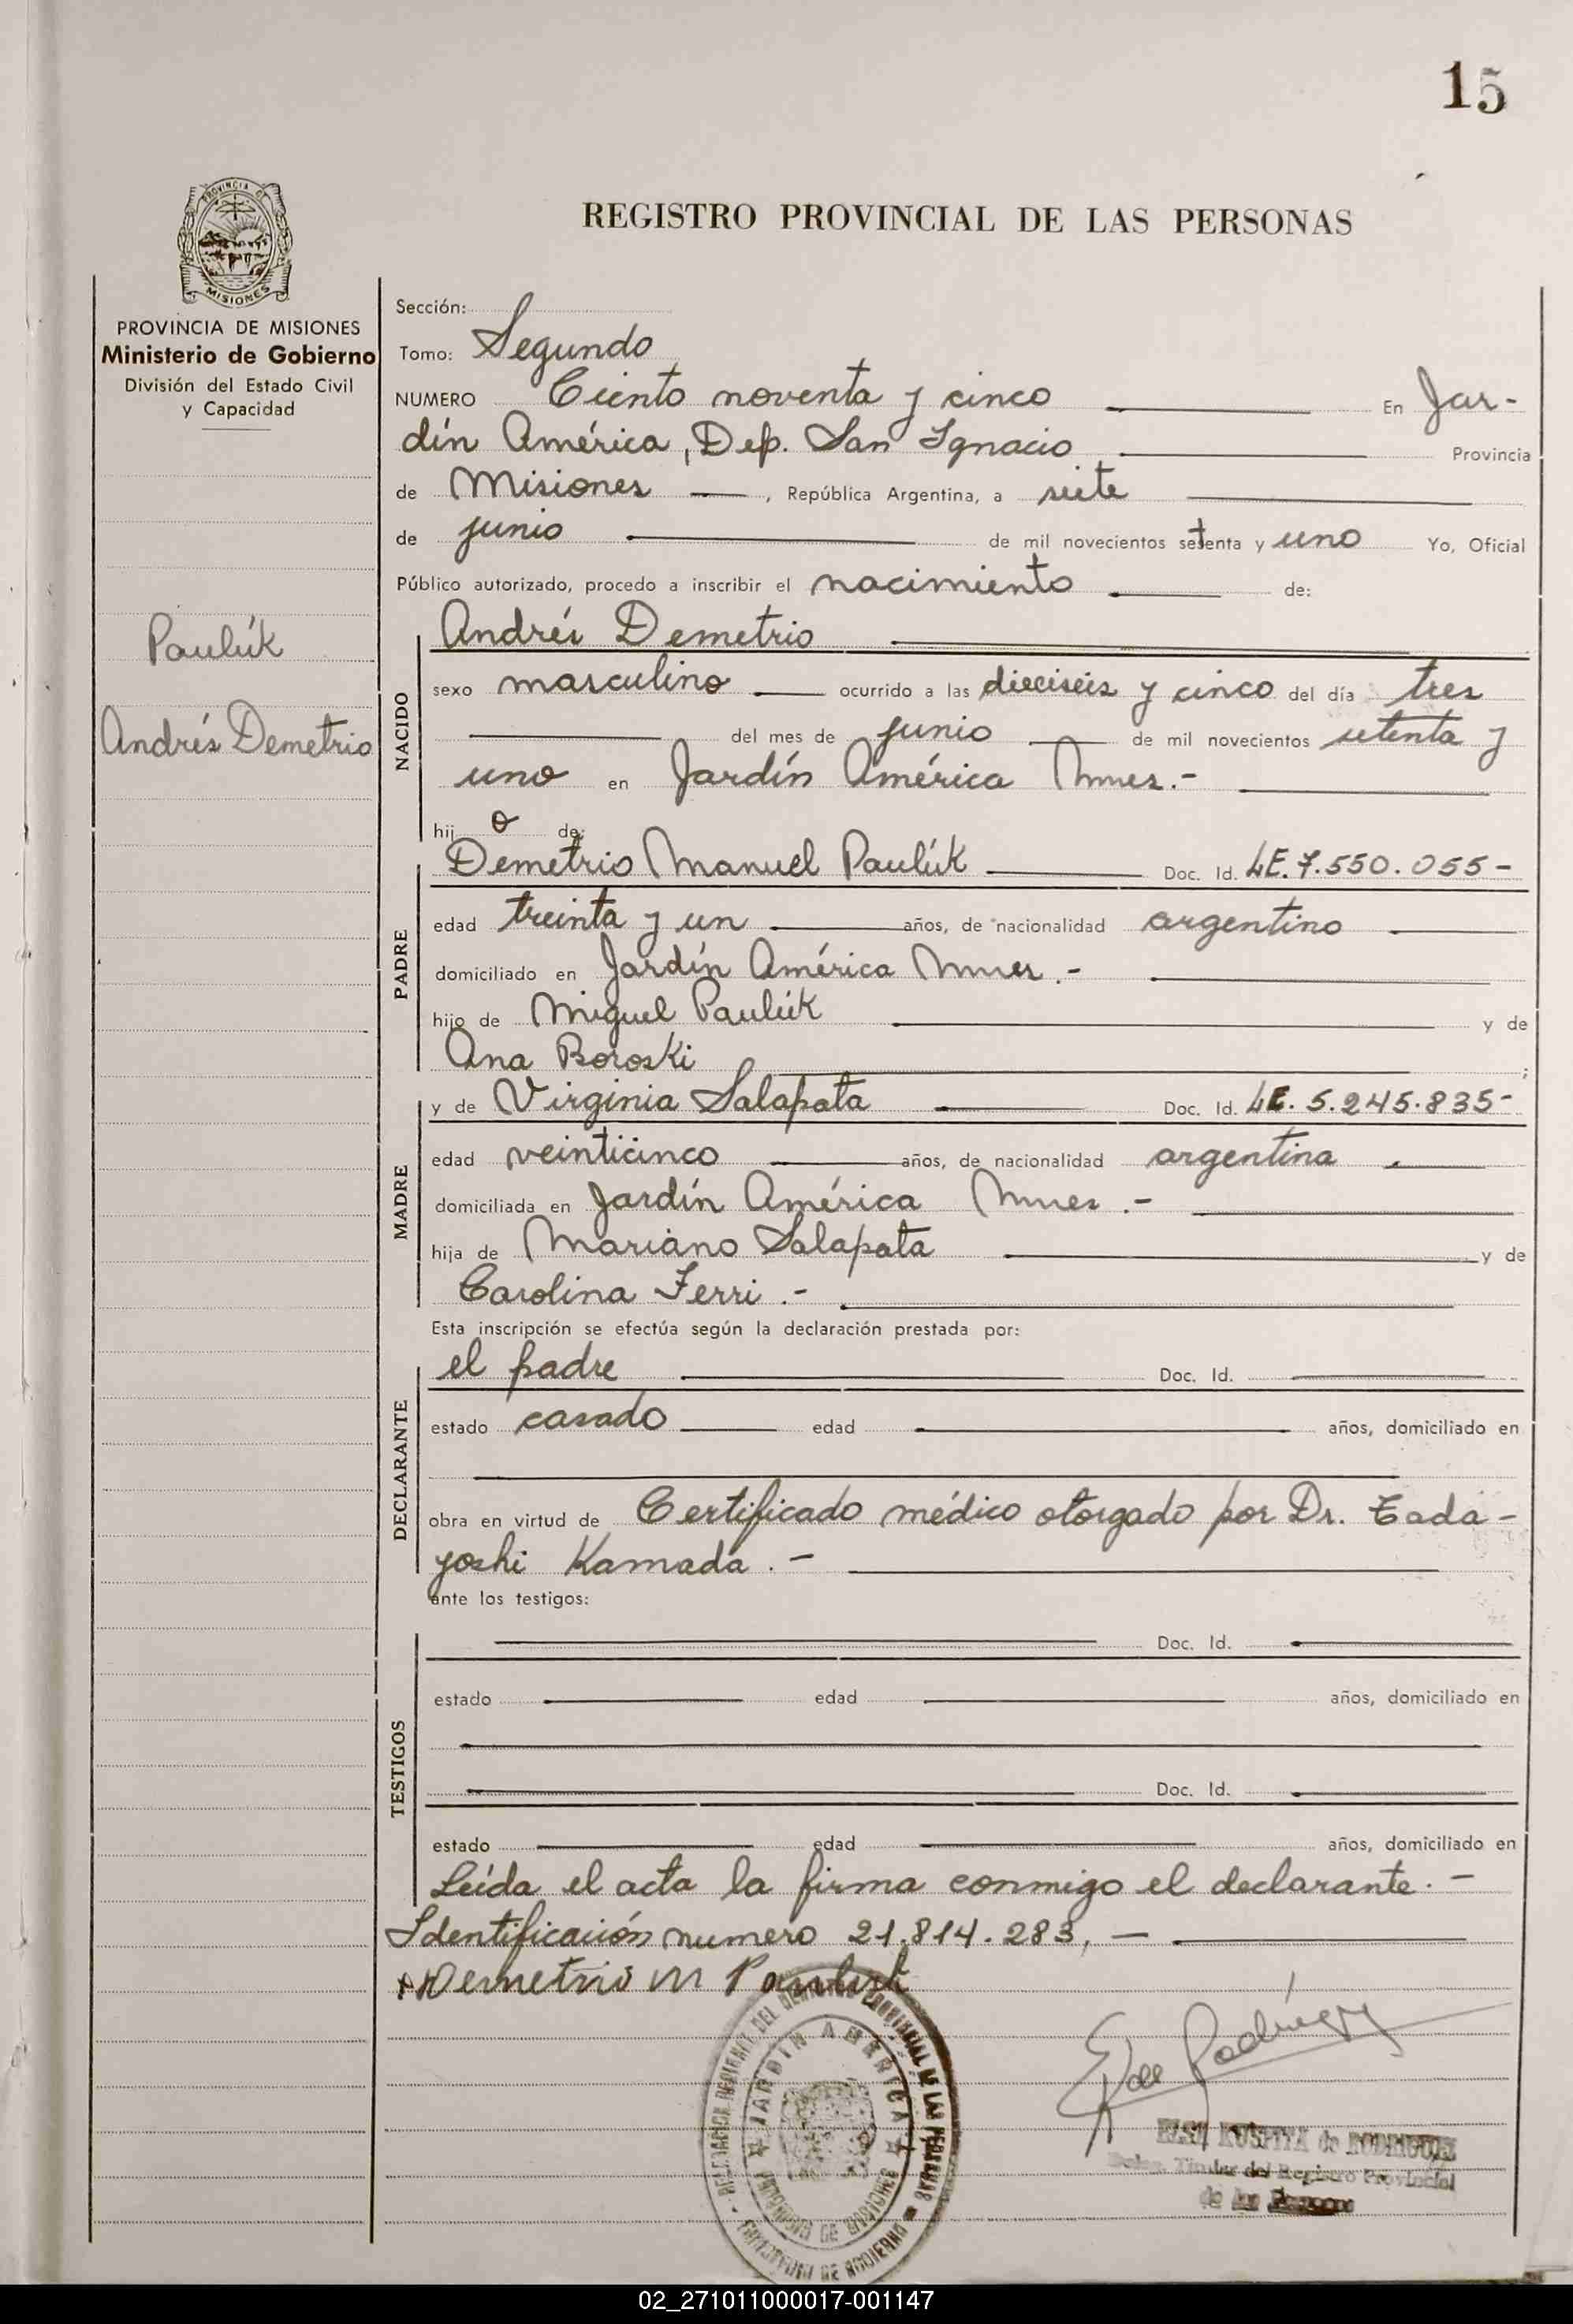 15
REGISTRO PROVINCIAL DE LAS PERSONAS
PROVINCIA DE MISIONES
Ministerio de Gobierno
División del Estado Civil
y Capacidad
Paulúk
Andrés Demetrio
Sección:
Tomo: Segundo
NUMERO Ciento noventa y cinco En Jar-
dín América, Dep. San Ignacio Provincia
de Misiones —, República Argentina, a siete
de junio de mil novecientos setenta y uno Yo, Oficial
Público autorizado, procedo a inscribir el nacimiento de:
NACIDO
Andrés Demetrio
sexo masculino ocurrido a las dieciseis y cinco del día tres
del mes de junio de mil novecientos setenta y
uno en Jardín América Mnes.-
hijo de:
PADRE
Demetrio Manuel Paulúk Doc. Id. LE. 7.550.055-
edad treinta y un años, de nacionalidad argentino
domiciliado en Jardín América Mnes.-
hijo de Miguel Paulúk y de
Ana Boroski ;
MADRE
y de Virginia Salapata Doc. Id. LE. 5.245.835-
edad veinticinco años, de nacionalidad argentina
domiciliada en Jardín América Mnes.-
hija de Mariano Salapata y de
Carolina Ferri.-
Esta inscripción se efectúa según la declaración prestada por:
DECLARANTE
el padre Doc. Id.
estado casado edad años, domiciliado en
obra en virtud de Certificado médico otorgado por Dr. Tada-
yoshi Kamada.-
ante los testigos:
TESTIGOS
Doc. Id.
estado edad años, domiciliado en
Doc. Id.
estado edad años, domiciliado en
Leída el acta la firma conmigo el declarante.-
Identificación numero 21.814.283,—
Demetrio M Pauluk
JARDIN AMERICA
PROVINCIA DE MISIONES
MINISTERIO DE GOBIERNO
E de Rodríguez
KUSPITA de RODRIGUEZ
Titular del Registro Provincial
de las Personas
02_271011000017-001147